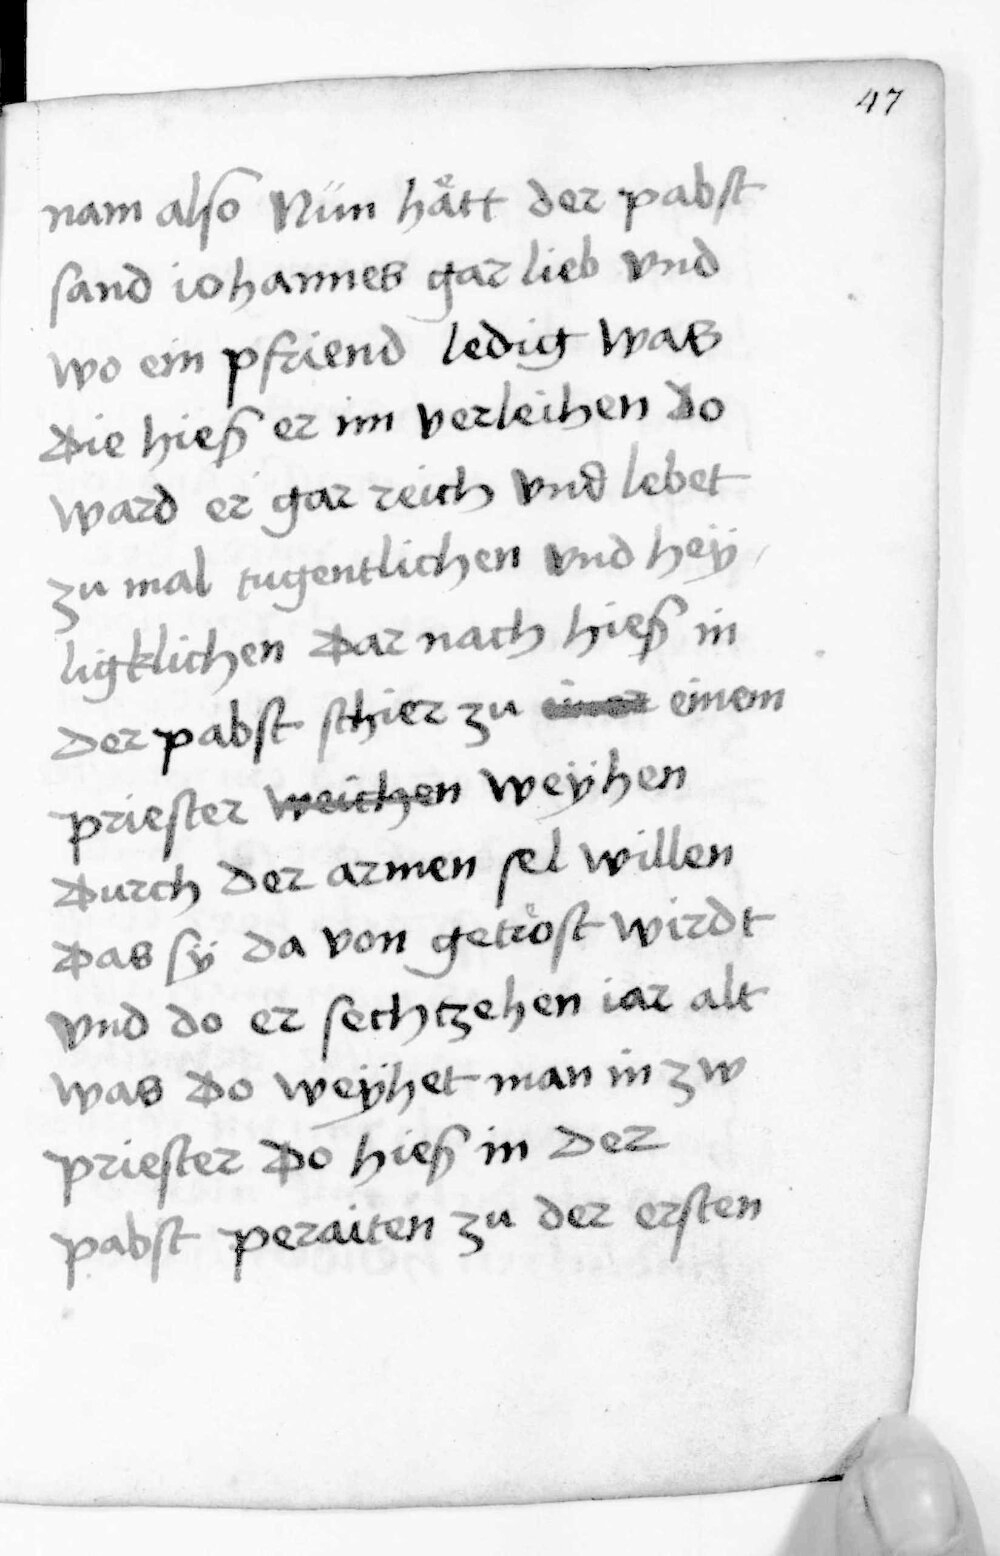 47
nam also Nün hätt der pabst
sand iohannes gar lieb vnd
wo ein pfriend ledig was
die hieß er im verleihen do
ward er gar reich vnd lebet
zu mal tugentlichen vnd hey
ligklichen dar nach hieß in
der pabst schier zu einem
priester weichen weÿhen
durch der armen sel willen
das sÿ da von getröst wirdt
vnd do er sechtzehen iar alt
was do weÿhet man in zw
priester do hieß in der
pabst peraiten zu der ersten